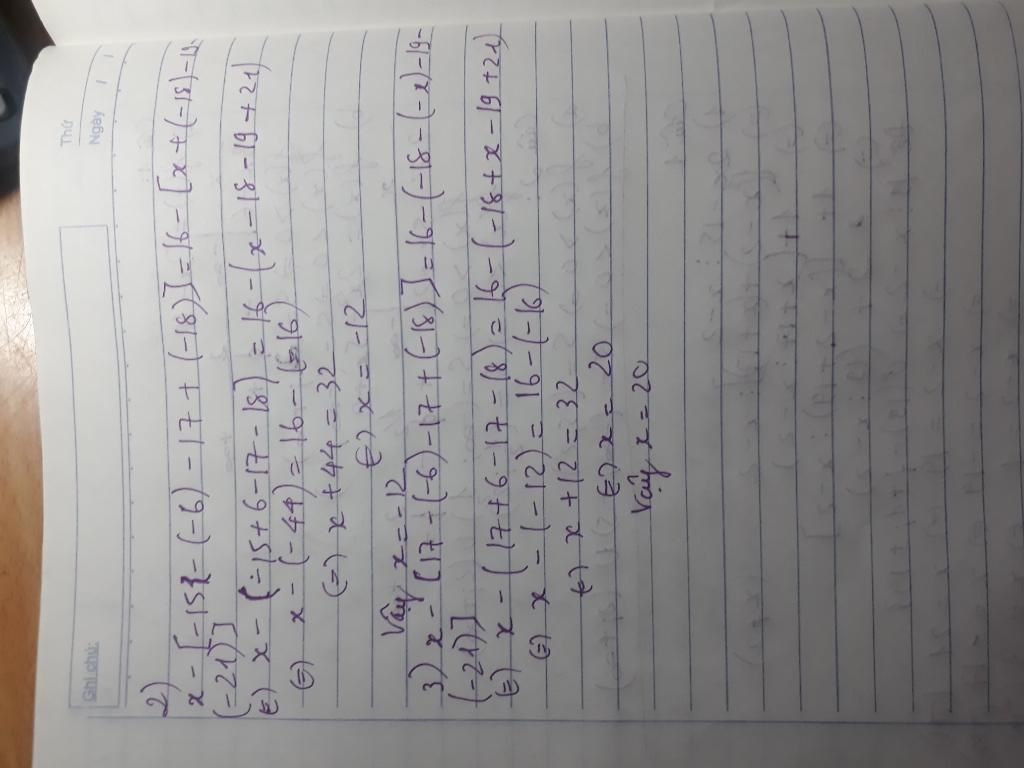 Thứ
Ngày / /
Ghi chú:
2)
x - [-15 - (-6) - 17 + (-18)] = 16 - [x + (-18) - 19 -
(-21)]
(=) x - (-15 + 6 - 17 - 18) = 16 - (x - 18 - 19 + 21)
(=) x - (-44) = 16 - (-16)
(=) x + 44 = 32
(=) x = -12
Vậy x = -12
3) x - [17 - (-6) - 17 + (-18)] = 16 - (-18 - (-x) - 19 -
(-21)]
(=) x - (17 + 6 - 17 - 18) = 16 - (-18 + x - 19 + 21)
(=) x - (-12) = 16 - (-16)
(=) x + 12 = 32
(=) x = 20
Vậy x = 20